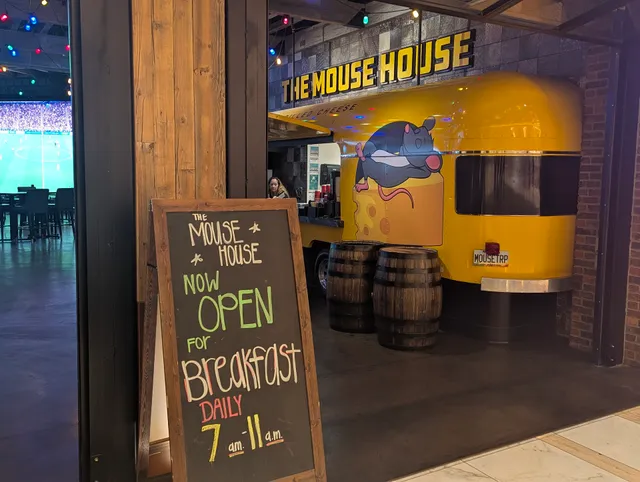 THE MOUSE HOUSE
GRILLED CHEESE
MOUSETRP
THE
MOUSE
HOUSE
NOW
OPEN
FOR
BreakfasT
DAILY
7 am-11 a.m.